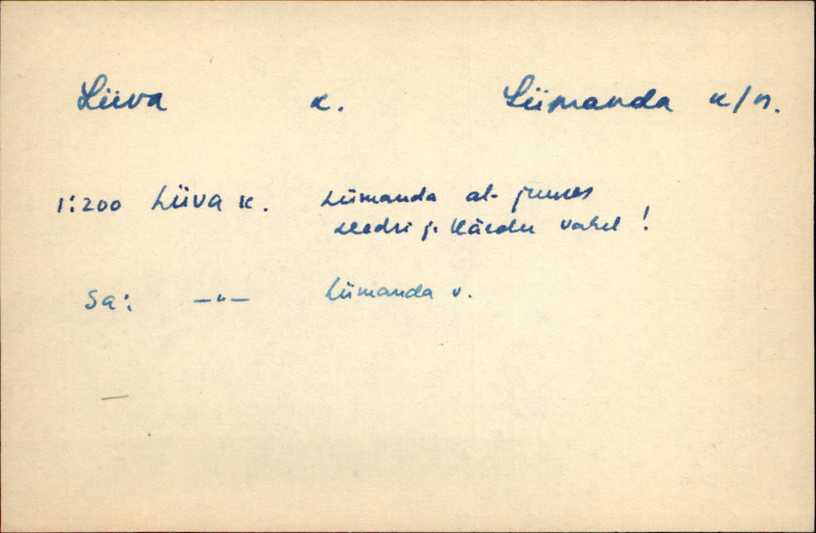 Liiva k. Lümanda k/n.
1:200 Liiva k. Lümanda al. juures
Leedri j. Kärdu vahel !
Sa: —"— Lümanda v.